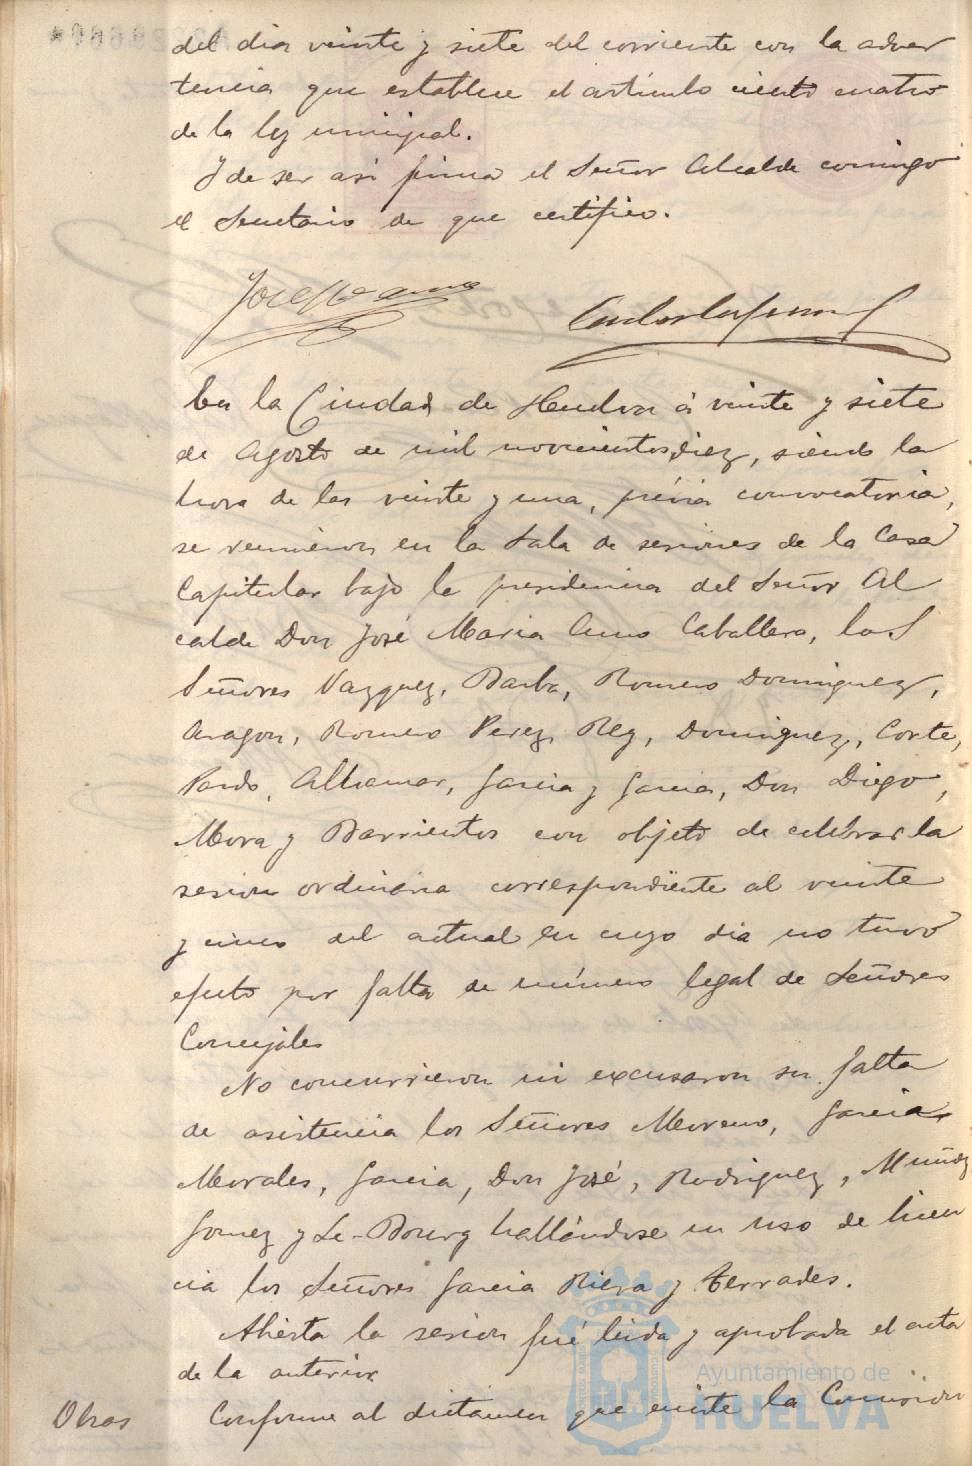 del dia veinte y siete del corriente con la adver
tencia que establece el artículo ciento cuatro
de la ley municipal.
Y de ser asi firma el Señor Alcalde conmigo
el Secretario de que certifico.
En la Ciudad de Huelva á veinte y siete
de Agosto de mil novecientos diez, siendo la
hora de las veinte y una, prévia convocatoria,
se reunieron en la Sala de sesiones de la Casa
Capitular bajo la presidencia del Señor Al
calde Don José Maria Amo Caballero, los
Señores Vazquez, Barba, Romero Dominguez,
Aragon, Romero Perez, Rey, Dominguez, Corte,
Pardo, Alhamar, Garcia y Garcia, Don Diego,
Mora y Barrientos con objeto de celebrar la
sesion ordinaria correspondiente al veinte
y cinco del actual en cuyo dia no tuvo
efecto por falta de número legal de Señores
Concejales
No concurrieron ni excusaron su falta
de asistencia los Señores Moreno, Garcia
Morales, Garcia, Don José, Rodriguez, Muñoz
Gomez y Le-Bourg hallándose en uso de licen
cia los Señores Garcia Riera y Terrades.
Abierta la sesion fué leida y aprobada el acta
de la anterior
Obras Conforme al dictamen que emite la Comision
Ayuntamiento de
HUELVA